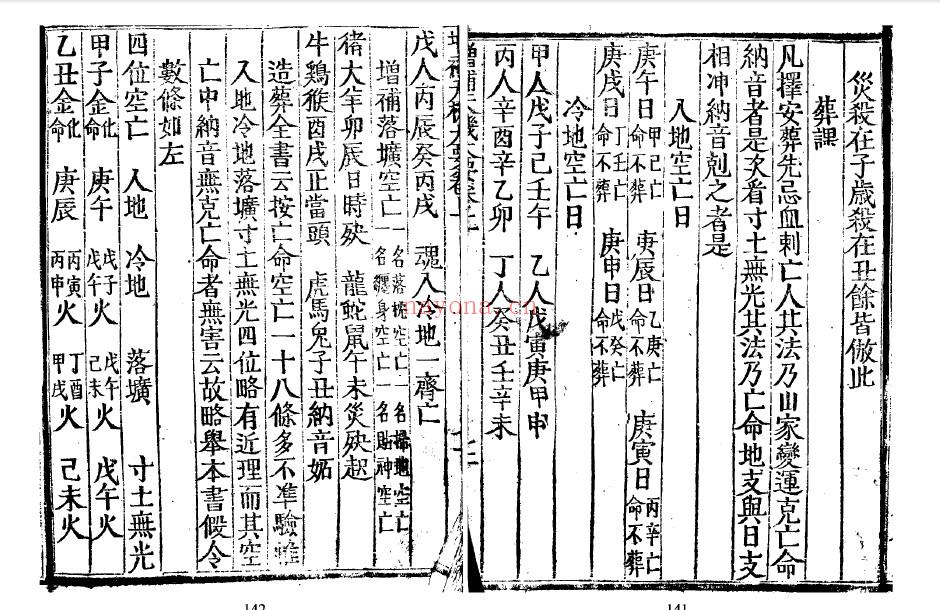 災殺在子歲殺在丑餘皆倣此
葬課
凡擇安葬先忌血刺亡人其法乃山家變運克亡命
納音者是次看寸土無光其法乃亡命地支與日支
相冲納音剋之者是
入地空亡日
庚午日甲己亡命不葬 庚辰日乙庚亡命不葬 庚寅日丙辛亡命不葬
庚戌日丁壬亡命不葬 庚申日戊癸亡命不葬
冷地空亡日
甲人戊子己壬午 乙人戊寅庚甲申
丙人辛酉辛乙卯 丁人癸丑壬辛未
戊人丙辰癸丙戌 魂入冷地一齊亡
增補落壙空亡一名落槐空亡一名掃地空亡一名纏身空亡一名貼神空亡
猪犬羊卯辰日時殃 龍蛇鼠午未災殃起
牛鷄猴酉戌止當頭 虎馬兔子丑納音妬
造葬全書云按亡命空亡一十八條多不準驗惟
入地冷地落壙寸土無光四位略有近理而其空
亡中納音無克亡命者無害云故略舉本書假令
數條如左
四位空亡 入地 冷地 落壙 寸土無光
甲子金命化 庚午 戊子戊午火 戊午己未火 戊午火
乙丑金命化 庚辰 丙寅丙申火 丁酉甲戌火 己未火
mayona.cn
142
141